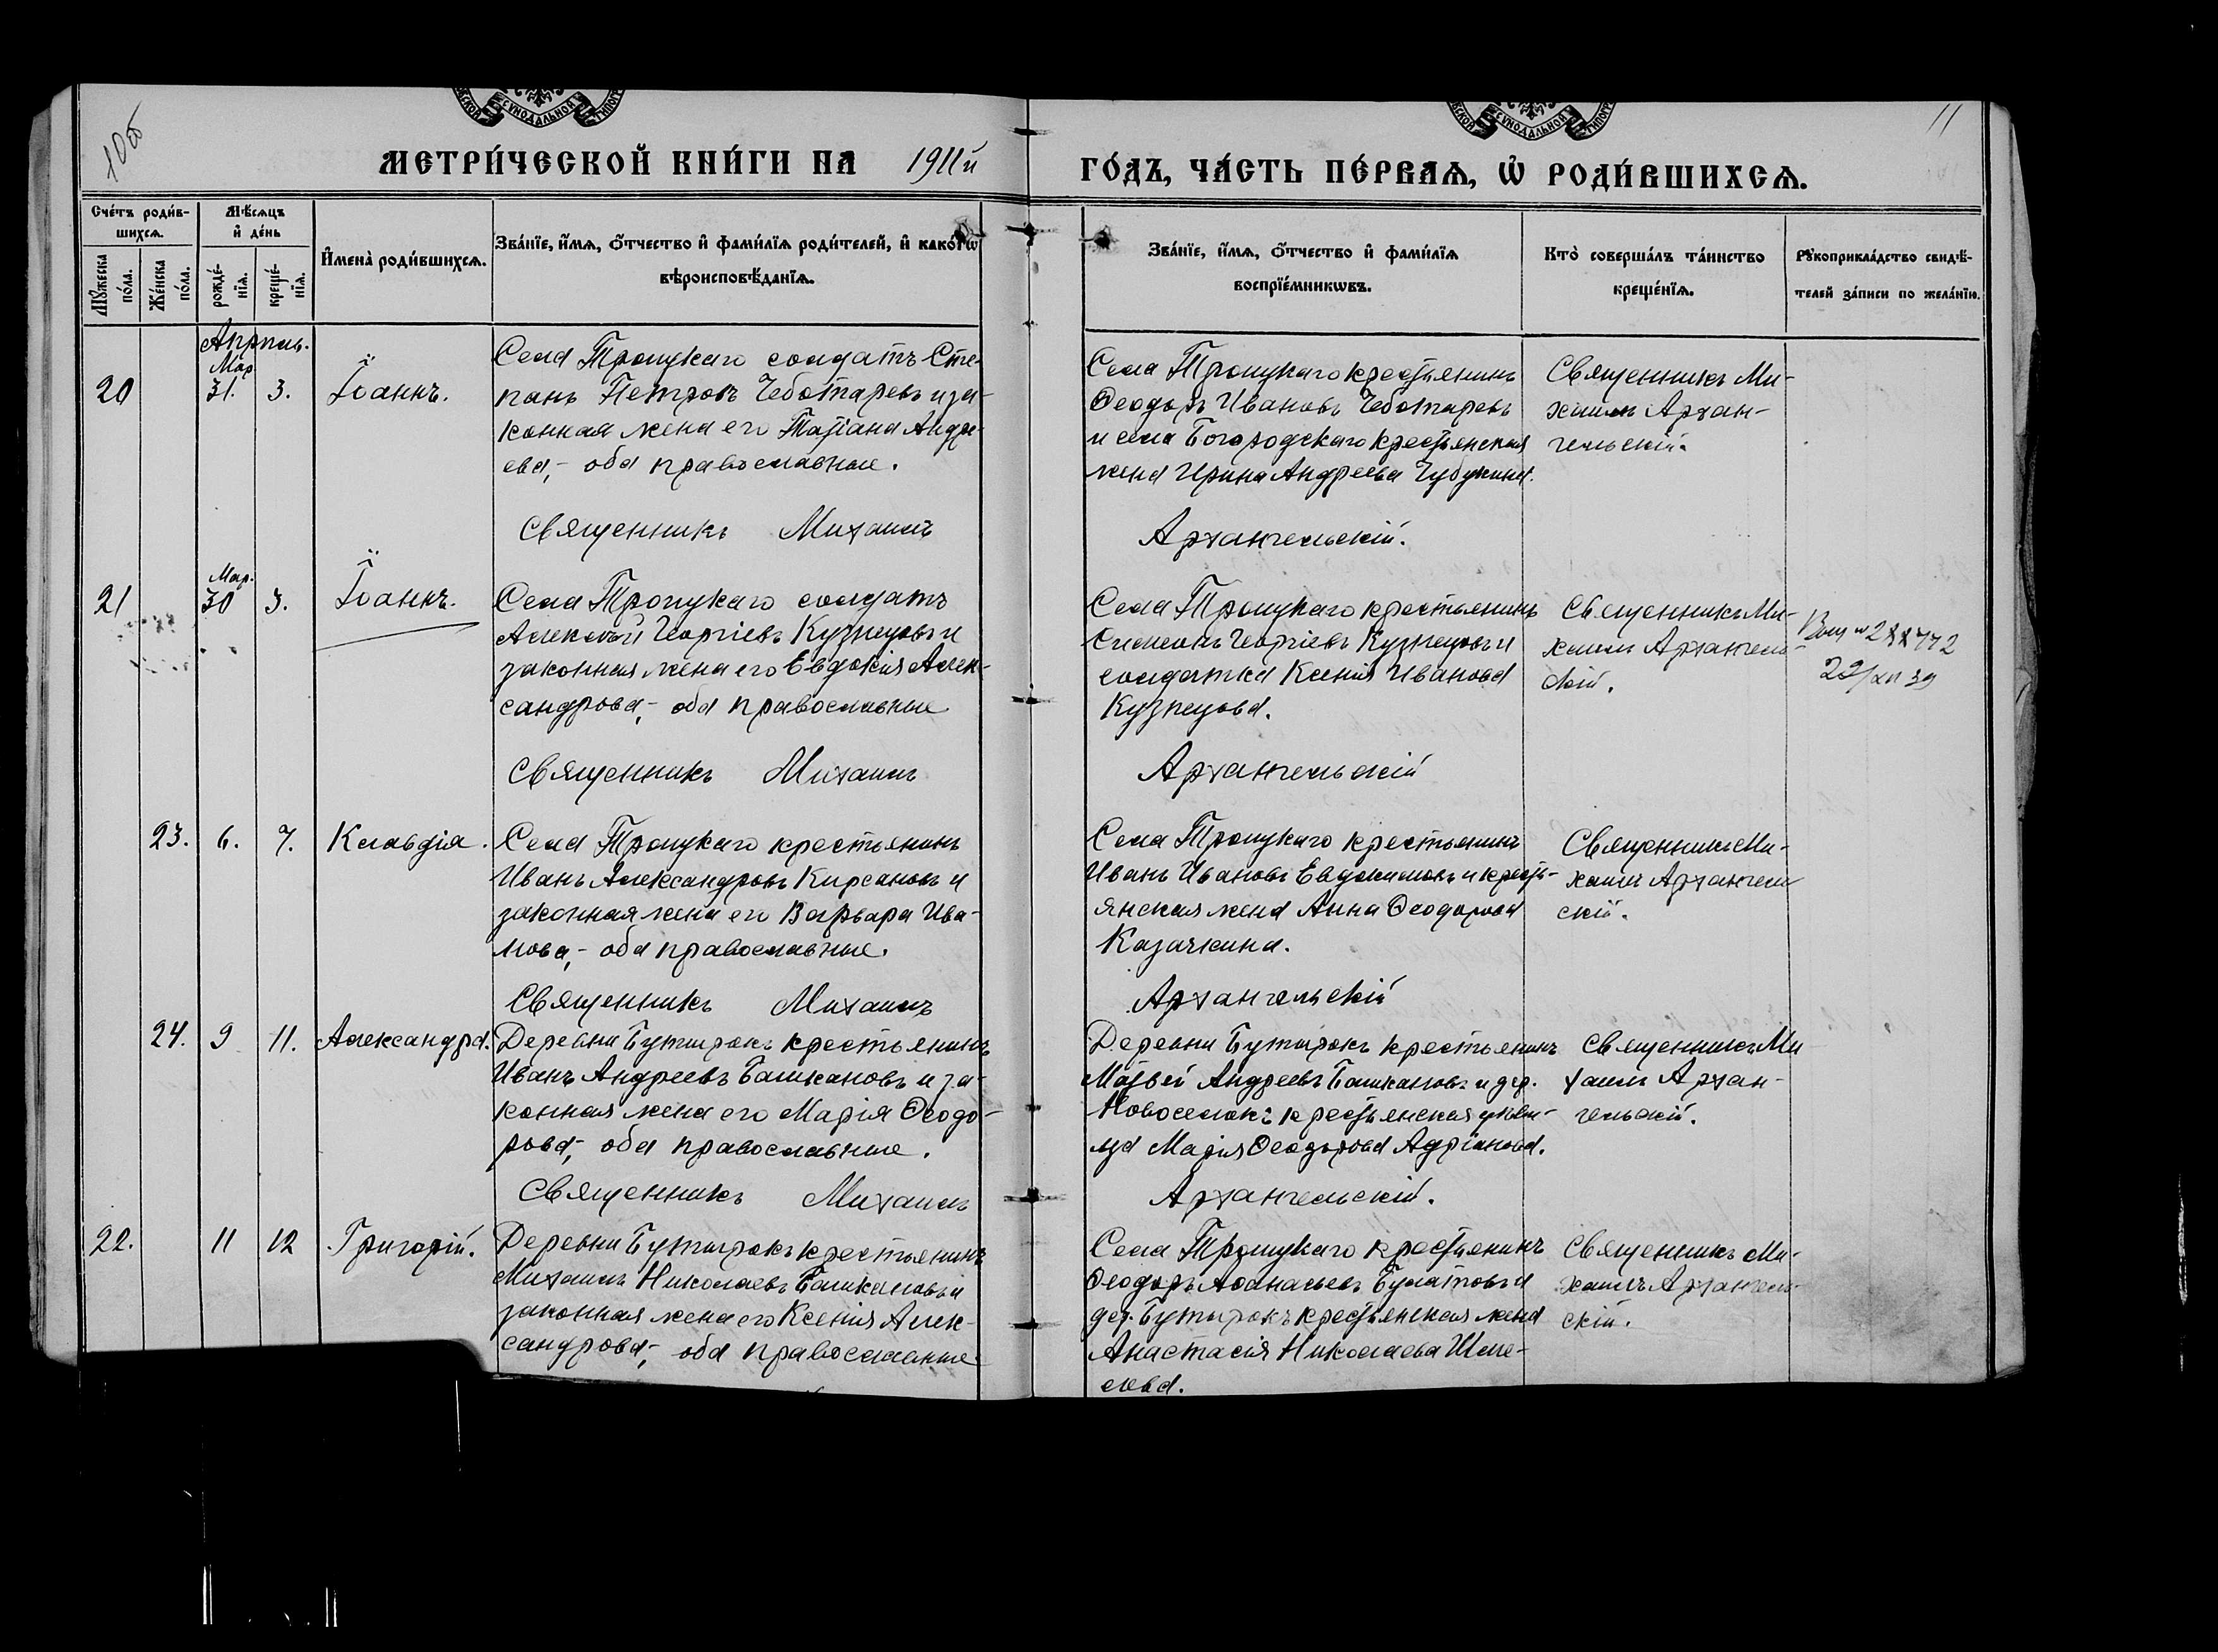 10об
11
СУНОДАЛЬНОЙ
СУНОДАЛЬНОЙ
МЕТРИ́ЧЕСКОЙ КНИ́ГИ НА 1911й ГО́ДЪ, ЧА́СТЬ ПЕ́РВАѦ, Ѽ РОДИ́ВШИХСѦ.
Сче́тъ роди́в-
шихсѧ.
Мѣ́сѧцъ
и҆ де́нь
Мꙋ́жеска
по́ла.
Же́нска
по́ла.
рожде́-
нїѧ.
креще́-
нїѧ.
И҆мена̀ роди́вшихсѧ.
Зва́нїе, и҆́мѧ, ѻ҆́тчество и҆ фами́лїѧ роди́телей, и҆ како́гѡ
вѣроисповѣ́данїѧ.
Зва́нїе, и҆́мѧ, ѻ҆́тчество и҆ фами́лїѧ
воспрїе́мникѡвъ.
Кто̀ соверша́лъ та́инство
креще́нїѧ.
Рꙋкоприкла́дство свидѣ́-
телей за́писи по жела́нїю.
Апрѣль.
Мар
20 31. 3. Іоаннъ.
Села Троицкаго солдатъ Сте-
панъ Петровъ Чеботаревъ и за-
конная жена его Татіана Андре-
ева,- оба православные.
Села Троицкаго крестьянинъ
Ѳеодоръ Ивановъ Чеботаревъ
и села Богородскаго крестьянская
жена Ирина Андреева Чубукина.
Священникъ Ми-
хаилъ Архан-
гельскій.
Священникъ Михаилъ Архангельскій.
Мар.
21 30 3. Іоаннъ.
Села Троицкаго солдатъ
Алексѣй Георгіевъ Кузнецовъ и
законная жена его Евдокія Алек-
сандрова,- оба православные
Села Троицкаго крестьянинъ
Симеонъ Георгіевъ Кузнецовъ и
солдатка Ксенія Иванова
Кузнецова.
Священникъ Ми-
хаилъ Архангель-
скій.
22/XII 39
Священникъ Михаилъ Архангельскій
23. 6. 7. Клавдія.
Села Троицкаго крестьянинъ
Иванъ Александровъ Кирсановъ и
законная жена его Варвара Ива-
нова,- оба православные.
Села Троицкаго крестьянинъ
Иванъ Ивановъ Евдокимовъ и кресть-
янская жена Анна Ѳеодорова
Казачкина.
Священникъ Ми-
хаилъ Архангель
скій.
Священникъ Михаилъ Архангельскій
24. 9 11. Александра.
Деревни Бутырокъ крестьянинъ
Иванъ Андреевъ Башкановъ и за-
конная жена его Марія Ѳеодо-
рова,- оба православные.
Деревни Бутырокъ крестьянинъ
Матвей Андреевъ Башкановъ и дер.
Новоселокъ крестьянская дѣви-
ца Марія Ѳеодорова Адріанова.
Священникъ Ми
хаилъ Архан-
гельскій.
Священникъ Михаилъ Архангельскій.
22. 11 12 Григорій.
Деревни Бутырокъ крестьянинъ
Михаилъ Николаевъ Башкановъ и
законная жена его Ксенія Алек-
сандрова,- оба православные.
Села Троицкаго крестьянинъ
Ѳеодоръ Аѳанасьевъ Булатовъ и
дер. Бутырокъ крестьянская жена
Анастасія Николаева Шме-
лева.
Священникъ Ми-
хаилъ Архангель-
скій.